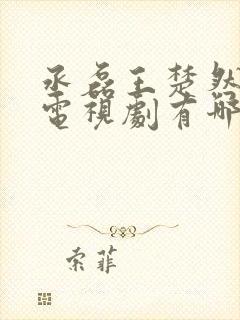 丞磊王楚然
電視劇有哪
索菲